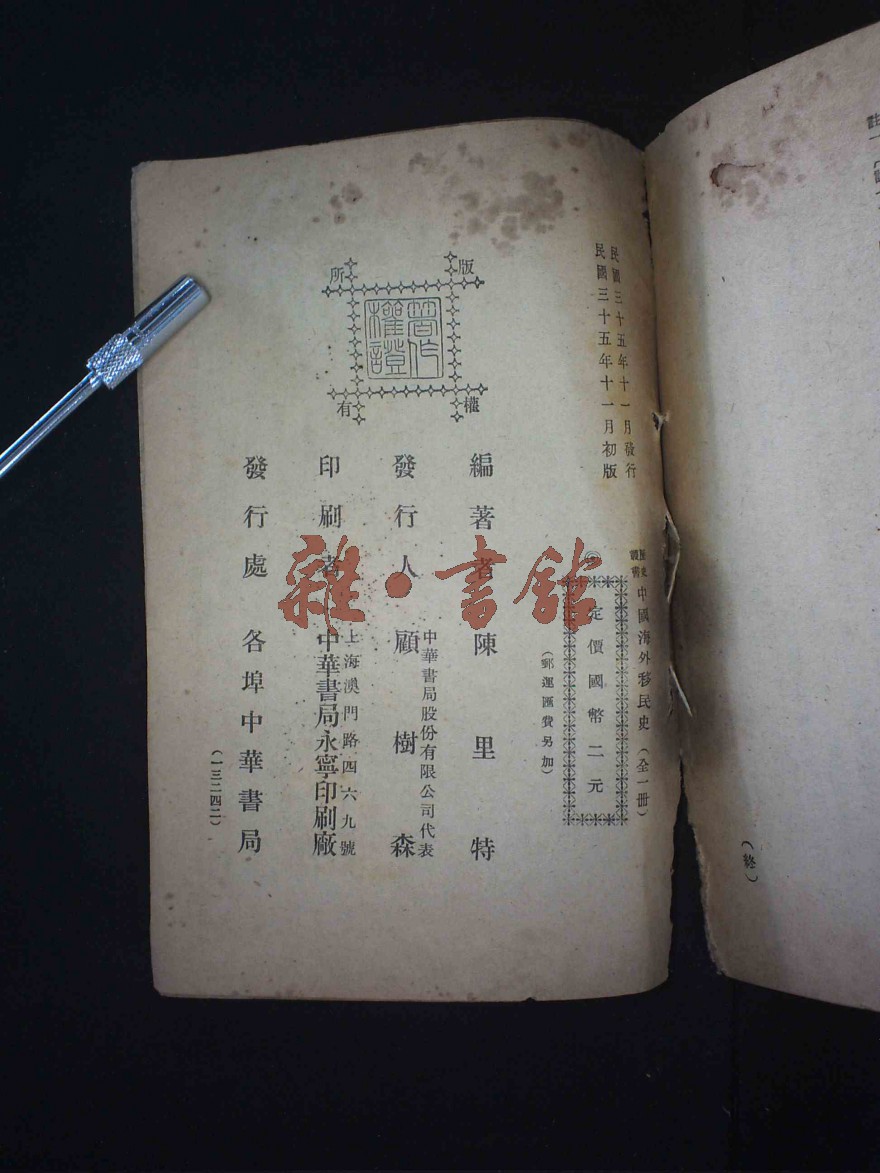 民國三十五年十一月發行
民國三十五年十一月初版
歷史叢書 中國海外移民史(全一冊)
◎定價國幣二元
(郵運匯費另加)
版權所有
著作權證
編著者 陳里特
發行人 中華書局股份有限公司代表
顧樹森
印刷者 上海澳門路四六九號
中華書局永寧印刷廠
發行處 各埠中華書局
(一三二四二)
(終)
雜·書館